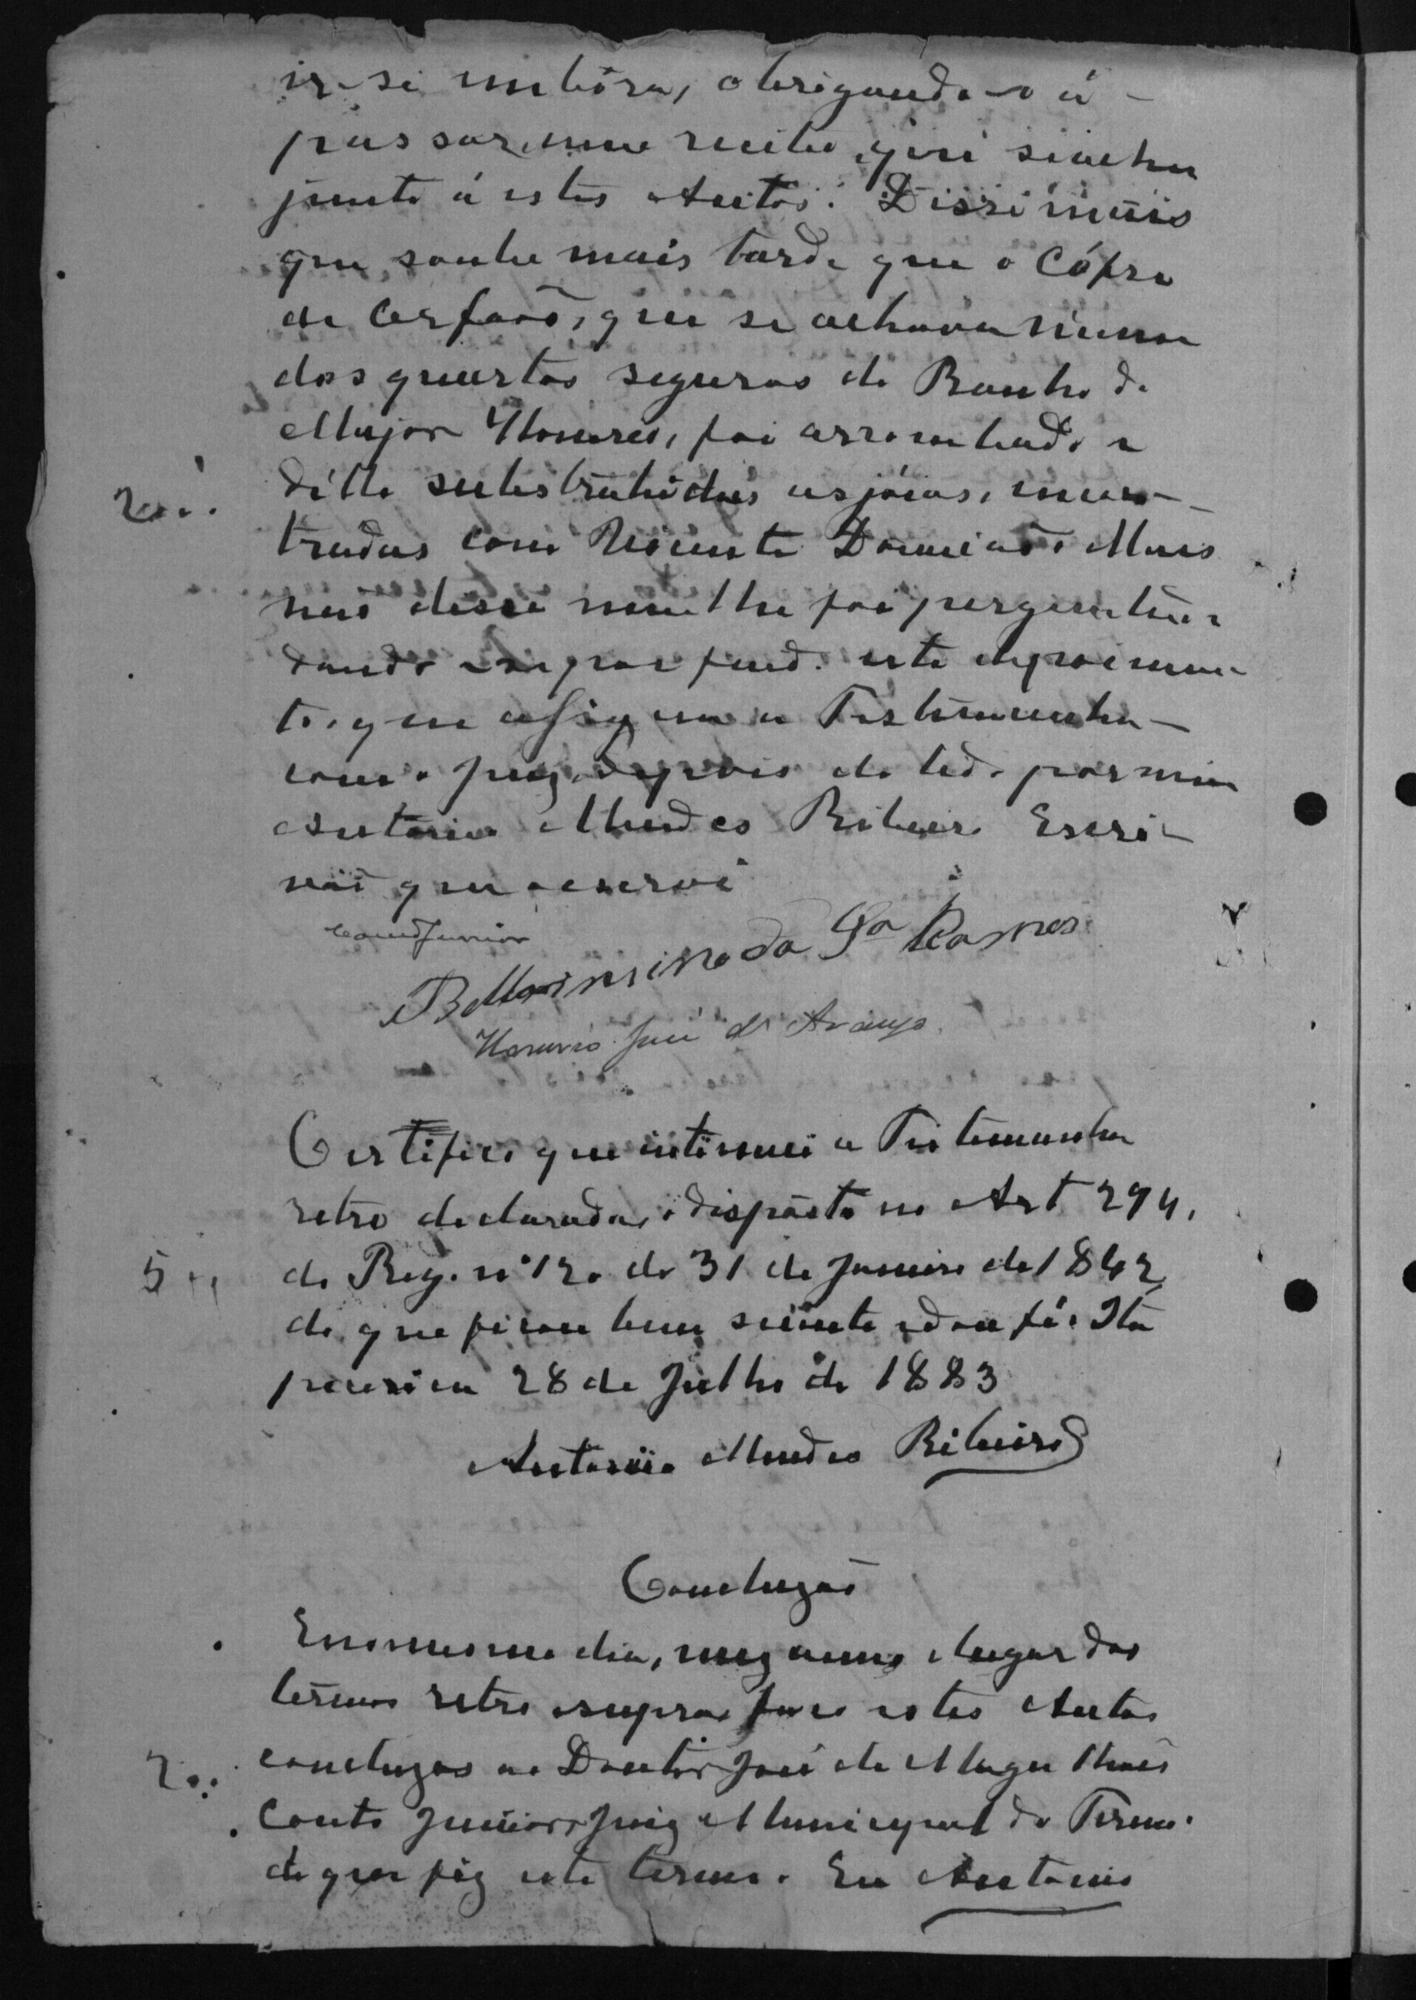 ir-se embóra, obrigando-o á
passar um recibo, que se acha
junto á estes Autos. Disse mais
que soube mais tarde que o Cófre
de Orfaõs, que se achava n'uma
dos quartos seguros do Rancho do
Major Honorio, foi arrombado e
d'elle substrahidas as joias, encon-
tradas com Vicente Damião. Mais
naõ disse nem lhe foi perguntado
dando-se por findo este depoimen-
to, que assigna a Testemunha
com o Juiz, depois de lido por mim
Antonio Mendes Ribeiro Escri-
vaõ que o escrevi
Couto Junior
Bellarmino da Sa Ramos
Honorio José d' Araujo.
Certifico que intimei a Testemunha
retro declarada, o disposto no Art 294.
do Reg. nº 120 de 31 de Janeiro de 1842
do que ficou bem sciente e dou fé. Ita
pecerica 28 de Julho de 1883
Antonio Mendes Ribeiro
Concluzaõ
E no mesmo dia, mez anno e lugar dos
termos retro e supra faço estes Autos
concluzos ao Doutor José de Magalhaẽs
Couto Junior, Juiz Municipal do Termo.
do que fiz este termo. Eu Antonio
200
5
200